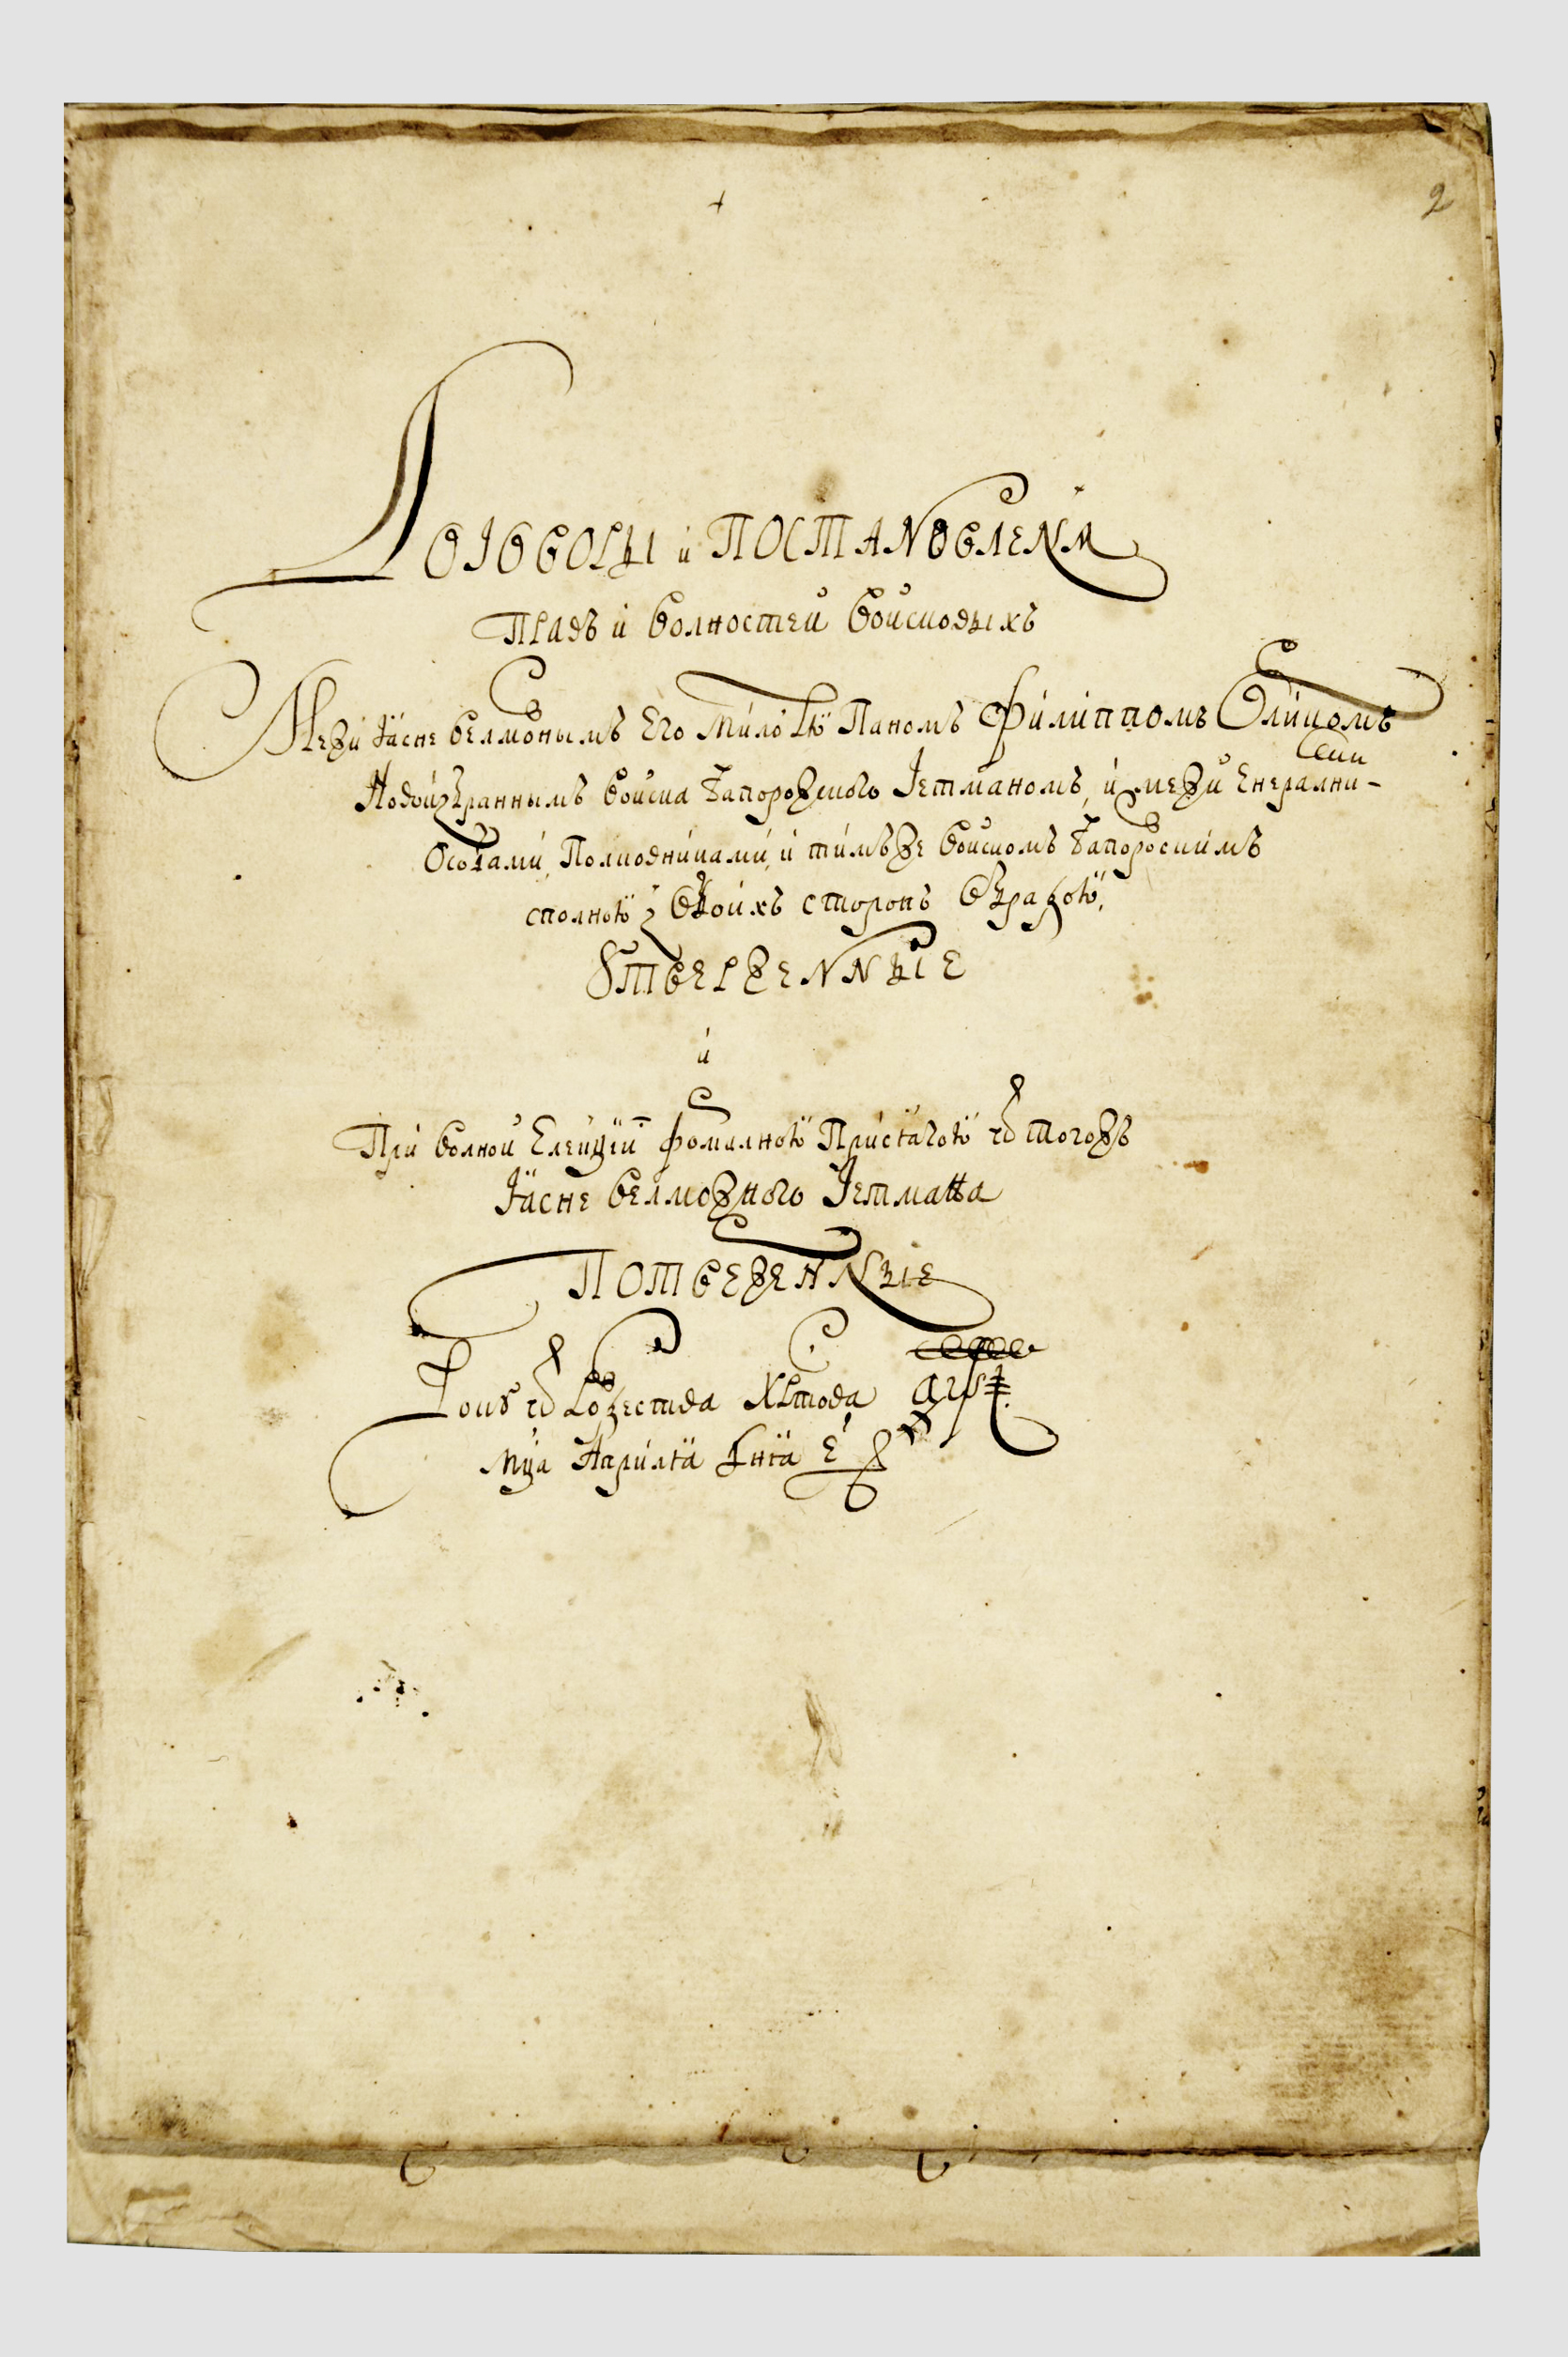 2
ДОГОВОРЫ и ПОСТАНОВЛЕНЯ
Правъ и волностей войсковыхъ
Межи Ясне велможнымъ Его милостю Паномъ Филиппомъ Орликомъ
Новоизбраннымъ войска Запорожского Гетманомъ, и межи Енералними
Особами, Полковниками, и тимъже войскомъ Запорозскимъ
сполною з обоихъ сторонъ обрадою,
УТВЕРЖЕННЫЕ
и
При волной Елекціи формалною Присягою от тогожъ
Ясне велможного Гетмана
ПОТВЕРЖЕННЫЕ
Року от Рожества Христова
мца Априля дня є